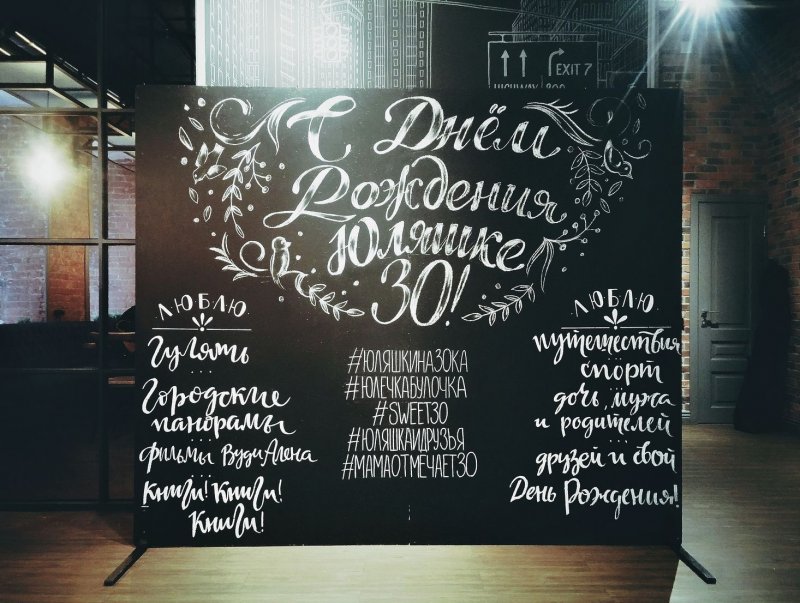 EXIT 7
HIGHWAY
С Днём
Рождения
Юляшке
30!
ЛЮБЛЮ
Гулять
Городские
панорамы
фильмы Вуди Алена
Книги! Книги!
Книги!
#ЮЛЯШКИНАЗОКА
#ЮЛЕЧКАБУЛОЧКА
#SWEET30
#ЮЛЯШКАИДРУЗЬЯ
#МАМАОТМЕЧАЕТ30
ЛЮБЛЮ
путешествия
спорт
дочь, мужа
и родителей
друзей и свой
День Рождения!